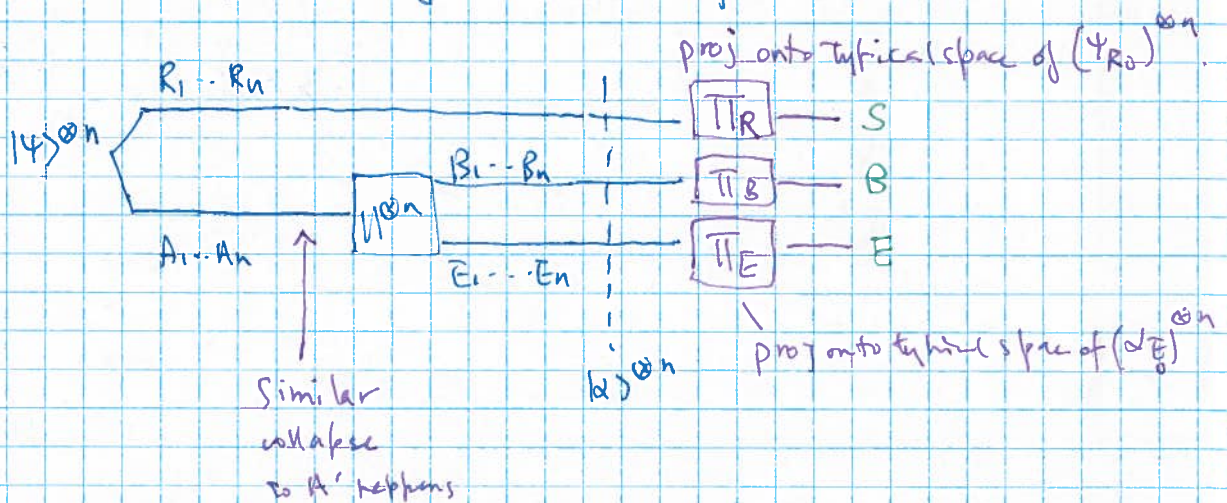 proj onto typical space of (Ψ_{R_0})^{⊗n}.
R_1 .. R_n
|Ψ⟩^{⊗n}
Π_R
S
B_1 .. B_n
U^{⊗n}
Π_B
B
A_1 .. A_n
E_1 ... E_n
Π_E
E
proj onto typical space of (α_{E_0})^{⊗n}
|α⟩^{⊗n}
Similar
collapse
to A' happens